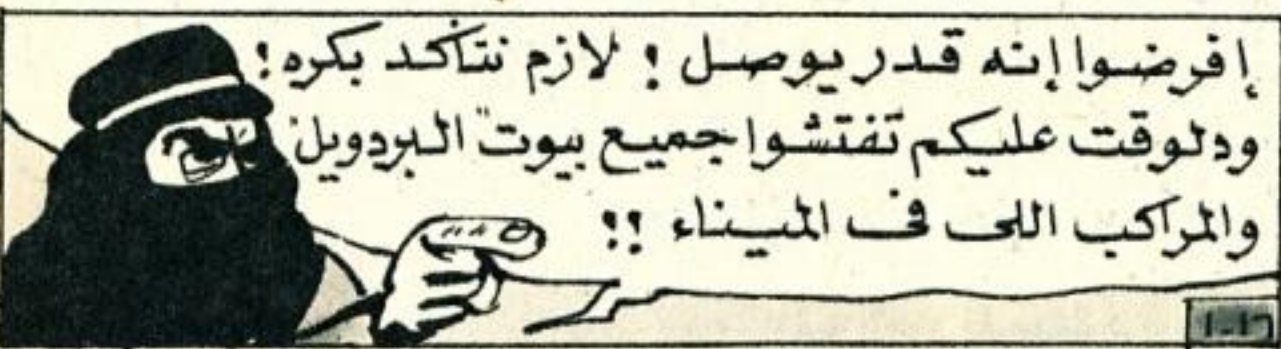 إفرضوا إنه قدر يوصل ! لازم نتأكد بكره !
ودلوقت عليكم تفتشوا جميع بيوت "البردويل"
والمراكب اللى فى الميناء !!
١-١٦